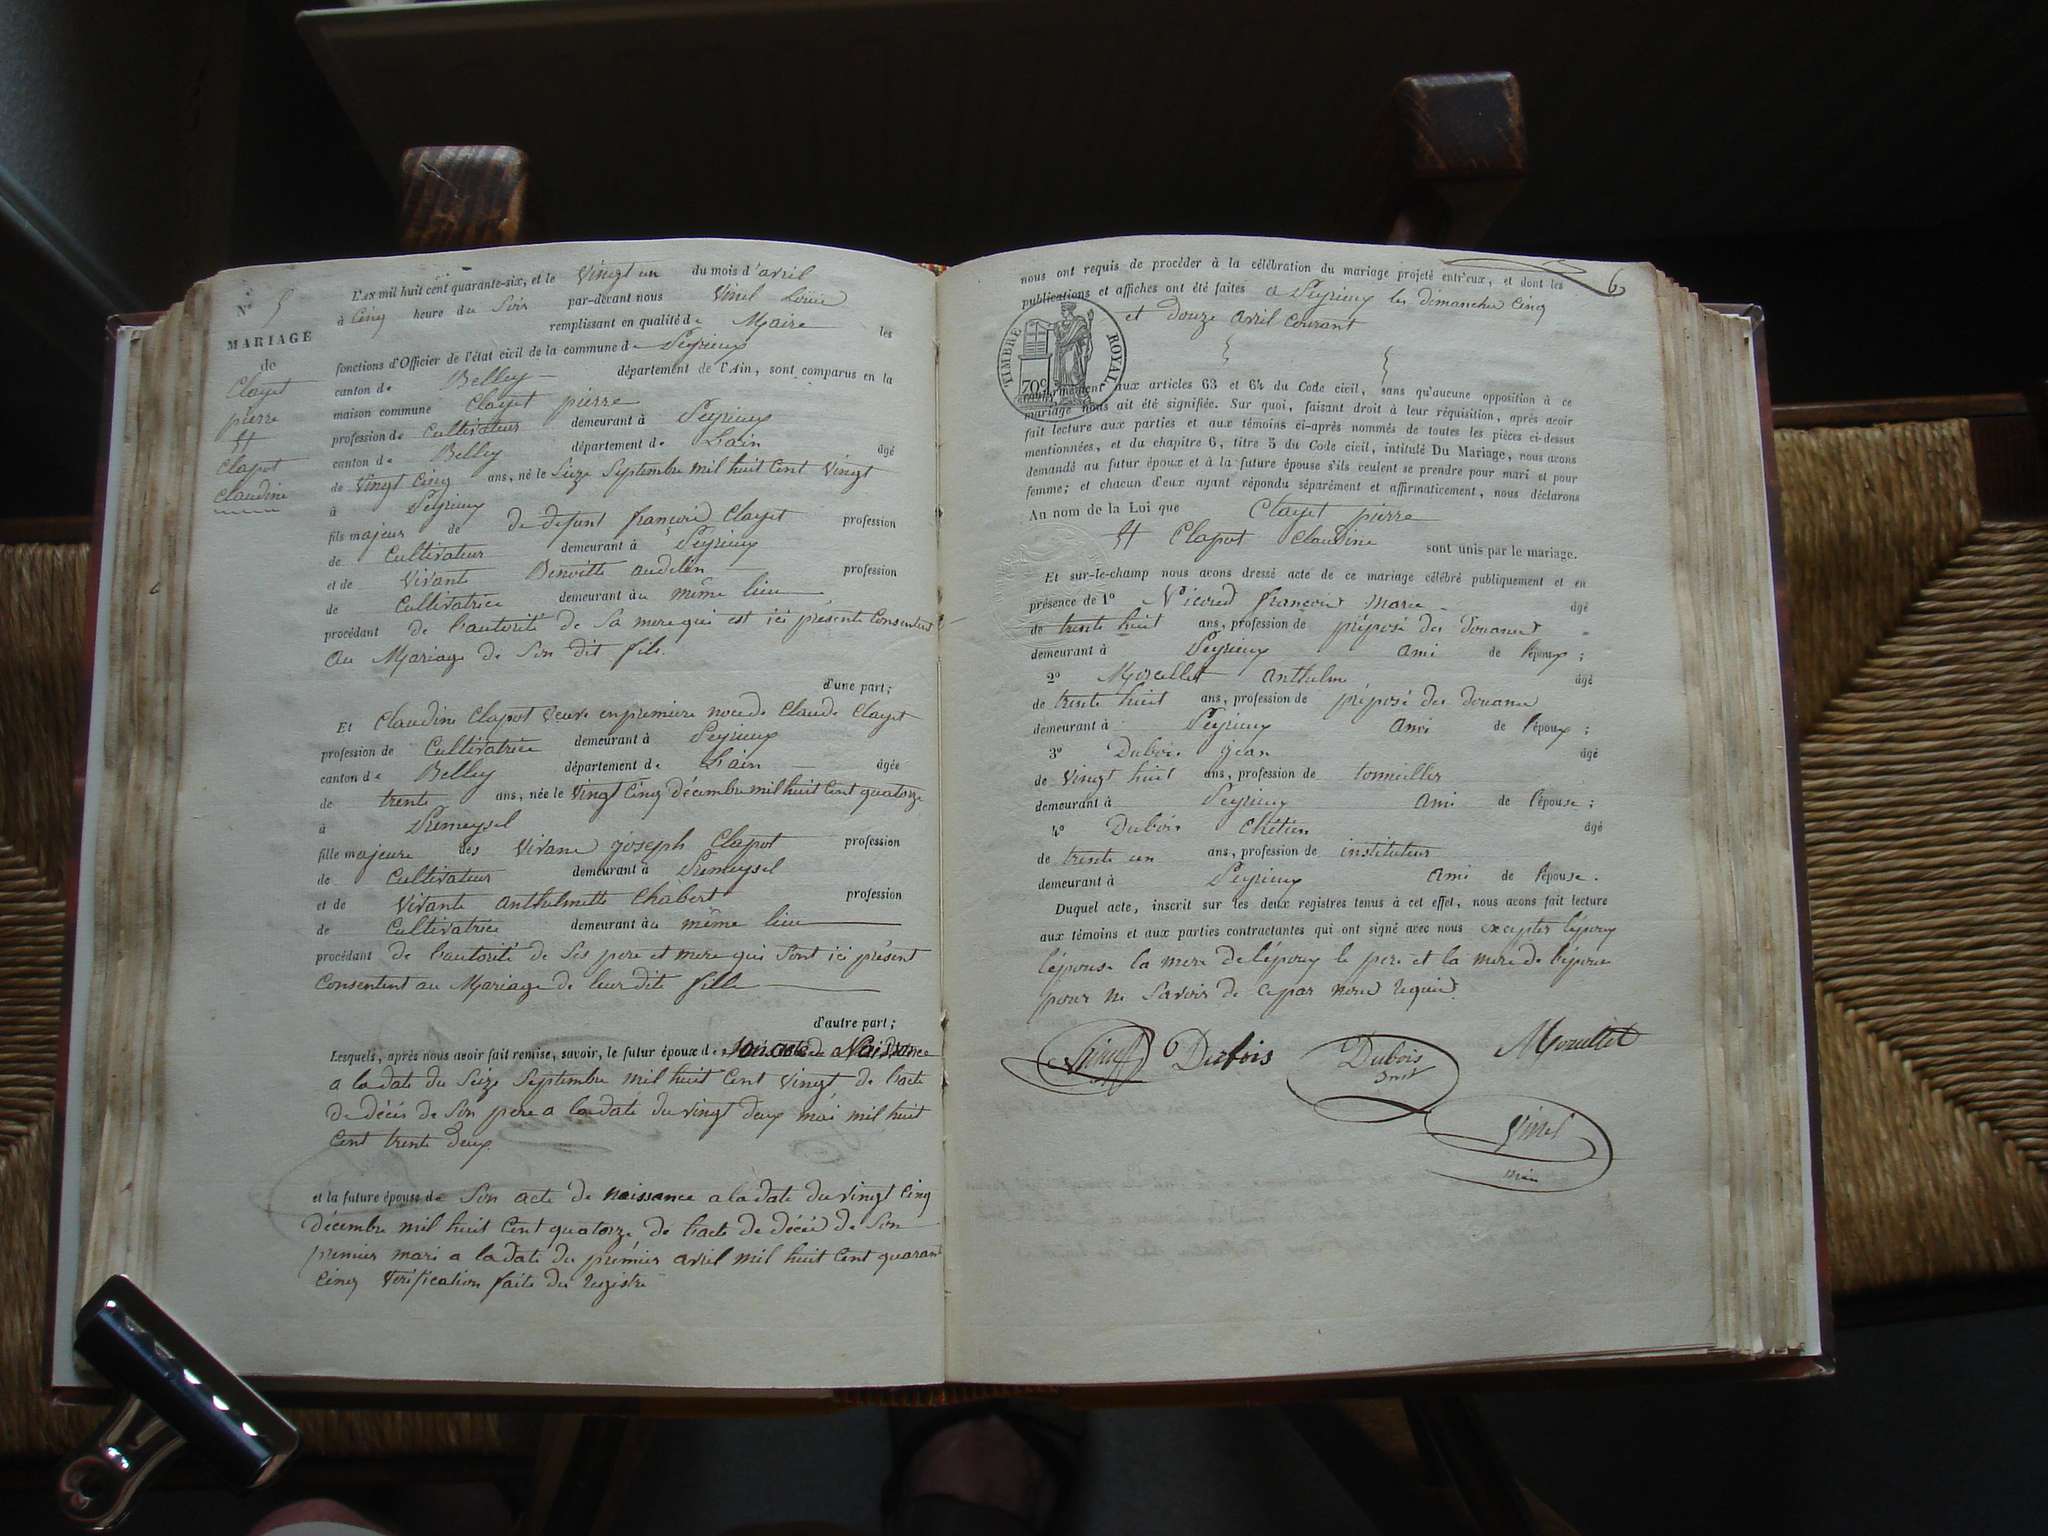 N° 5
MARIAGE
de
Clayet
pierre
et
Clapot
Claudine
L'AN mil huit cent quarante-six, et le Vingt un du mois d'avril
à Cinq heure du Soir par-devant nous Vinel Louis
remplissant en qualité de Maire les
fonctions d'Officier de l'état civil de la commune de Peyrieux
canton de Belley département de l'Ain, sont comparus en la
maison commune Clayet pierre
profession de Cultivateur demeurant à Peyrieux
canton de Belley département de Lain âgé
de Vingt Cinq ans, né le Seize Septembre mil huit Cent Vingt
à Peyrieux
fils majeur de de defunt françois Clayet profession
de Cultivateur demeurant à Peyrieux
et de Vivante Benoitte audelin profession
de Cultivatrice demeurant au même lieu
procédant de lautorité de Sa mere qui est ici présente Consentent
au Mariage de Son dit fils.
d'une part;
Et Claudine Clapot Veuve en premiere noce de Claude Clayet
profession de Cultivatrice demeurant à Peyrieux
canton de Belley département de Lain âgée
de trente ans, née le Vingt Cinq décembre mil huit Cent quatorze
à Prémeysel
fille majeure des Vivant joseph Clapot profession
de Cultivateur demeurant à Prémeysel
et de Vivante anthelmette Chabert profession
de Cultivatrice demeurant au même lieu
procédant de lautorité de Ses pere et mere qui Sont ici présent
Consentent au Mariage de leur dite fille
d'autre part;
Lesquels, après nous avoir fait remise, savoir, le futur époux de Son acte de Naissance
a la date du Seize Septembre mil huit Cent Vingt de lacte
de décès de Son pere a la date du vingt deux mai mil huit
Cent trente deux
et la future épouse de Son acte de naissance a la date du Vingt Cinq
décembre mil huit Cent quatorze, de lacte de décès de Son
premier mari a la date du premier avril mil huit Cent quarante
Cinq Vérification faite du registre
6
nous ont requis de procéder à la célébration du mariage projeté entr'eux, et dont les
publications et affiches ont été faites a Peyrieux les dimanches Cinq
et douze avril Courant
TIMBRE ROYAL
70c
conformément aux articles 63 et 64 du Code civil, sans qu'aucune opposition à ce
mariage nous ait été signifiée. Sur quoi, faisant droit à leur réquisition, après avoir
fait lecture aux parties et aux témoins ci-après nommés de toutes les pièces ci-dessus
mentionnées, et du chapitre 6, titre 5 du Code civil, intitulé Du Mariage, nous avons
demandé au futur époux et à la future épouse s'ils veulent se prendre pour mari et pour
femme; et chacun d'eux ayant répondu séparément et affirmativement, nous déclarons
Au nom de la Loi que Clayet pierre
et Clapot Claudine sont unis par le mariage.
Et sur-le-champ nous avons dressé acte de ce mariage célébré publiquement et en
présence de 1° françois Marie âgé
de trente huit ans, profession de préposé des douanes
demeurant à Peyrieux ami de l'époux;
2° Morellet anthelme âgé
de trente huit ans, profession de préposé des douane
demeurant à Peyrieux ami de l'époux;
3° Dubois jean âgé
de Vingt huit ans, profession de tonnellier
demeurant à Peyrieux ami de l'épouse;
4° Dubois Chétien âgé
de trente un ans, profession de instituteur
demeurant à Peyrieux ami de l'épouse.
Duquel acte, inscrit sur les deux registres tenus à cet effet, nous avons fait lecture
aux témoins et aux parties contractantes qui ont signé avec nous excepter lépoux
lépouse la mere de lépoux le pere et la mere de lépouse
pour ne Savoir de ce par nous requis.
Dubois
Dubois
Inst
Morellet
Vinel